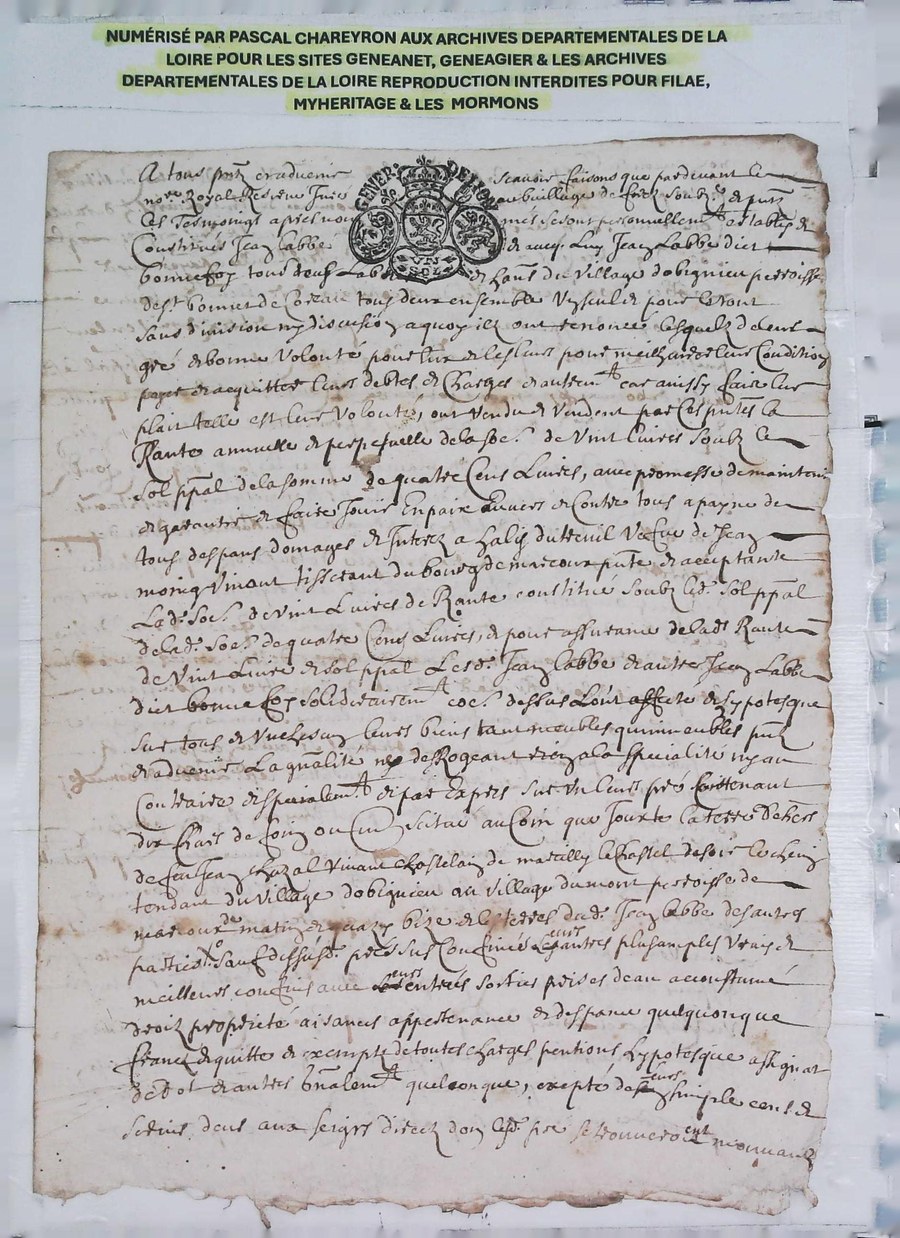 NUMÉRISÉ PAR PASCAL CHAREYRON AUX ARCHIVES DEPARTEMENTALES DE LA
LOIRE POUR LES SITES GENEANET, GENEAGIER & LES ARCHIVES
DEPARTEMENTALES DE LA LOIRE REPRODUCTION INTERDITES POUR FILAE,
MYHERITAGE & LES MORMONS
GENER. DE MO
VN
SOL
A tous pntz et aduenir scauoir faisons que pardeuant le
no.re Royal Reserue
Ces Tesmoings apres nom més se sont personnellem.t establis &
Constitués Jean Labbe & auec luy Jean Labbe dict
bonnefoy tous deux Lab du Village dobignieu perroisse
de s.t bonnet de Coreau tous deux ensemble Un seul & pour le tout
sans diuision ny discusion a quoy ilz ont renoncé lesquelz de leur
gré & bonne Volonté pour Eux & les leurs pour meilheurer leur Condition
payer & acquitter leurs debtes & Charges & autrem.t car ainssy faire leur
plait telle est leur Volonté, ont Vendu & Vendent par Ces pntes la
Rante annuelle & perpetuelle de la so.e de Vint Liures soubz le
sol ppal de la somme de quatre Cens Liures, auec promesse de maintenir
& garantir & faire Jouir En paix Enuers & Contre tous a payne de
tous despans domages & Interez a du treuil Vefue de Jean
moing Viuant tisserant du bourg de marcour pnte & acceptante
La d. so.e de Vint Liures de Rante constitué soubz led. sol ppal
de la d. so.e de quatre Cens Liures, & pour assurance de la d. Rante
de Vint Liure & sol ppal Lesd. Jean Labbe & autre Jean Labbe
dict bonnefoy solidairem.t dessus L'ont affecté & hypotesque
sur tous & Un Chescun leurs biens tant meubles quimmeubles pntz
& aduenir La gnalité ne desRogeant a la specialité ny au
Contraire & specialem.t & par Expres sur Un leurs pré Contenant
dix Chars de foin ou situé au Coin que Jouxte la terre
de feu Jean Chazal Viuant Chastelain de marcilly le Chastel de soir le chemin
tendant du Village dobignieu au Village du mont perroisse de
marcour de matin bize & les terres du d. Jean Labbe des autres
parties sauf leurs autres plus amples Vrays &
meilleurs confins auec leurs entrés sorties prises deau accoustumé
droiz proprieté aisances appertenance & despance quelquonque
franc & quitte & exempte de toutes charges pentions hypotesque assignat
de dot & autres gnalem.t quelconque, excepté de leurs simple cens &
seruis deus aux seigrs direcz don led. pre se trouueroient mouuantz